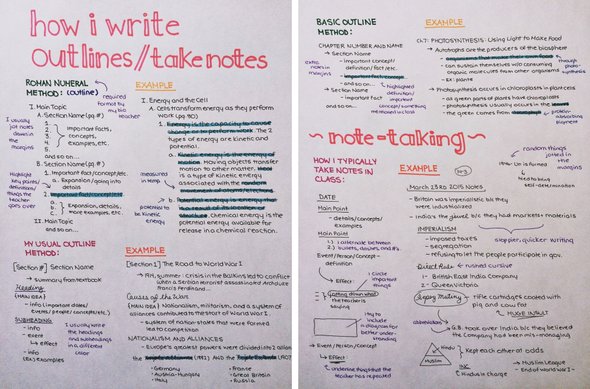 how i write
outlines//take notes
ROMAN NUMERAL
METHOD: (outline)
required
format by
my bio
teacher
I. Main Topic
A. Section Name (pg #)
1.
2.
3.
4.
5.
important facts,
concepts,
examples, etc.
and so on...
B. Section Name (pg #)
1. Important fact/concept/etc.
a. Expansion/going into
details
2. Important fact/concept
a.
b.
c.
Expansion, details,
more examples, etc.
and so on...
II. Main Topic
and so on...
I usually
jot notes
down in
the
margins
Highlight
key points/
definitions/
things the
teacher
goes over
EXAMPLE
I. Energy and the Cell
A. Cells transform energy as they perform
work (pg 80)
1. Energy is the capacity to cause
change or to perform work. The 2
types of energy are kinetic and
potential.
a. Kinetic energy is the energy of
motion. Moving objects transfer
motion to other matter. Heat
is a type of kinetic energy
associated with the random
b. Potential energy is energy that
structure. Chemical energy is the
potential energy available for
release in a chemical reaction.
measured
in temp.
potential
to be kinetic
energy
MY USUAL OUTLINE
METHOD:
[Section #] Section Name
→ Summary from textbook
Heading
{MAIN IDEA}
- info (important dates/
events/people/concepts/etc.)
SUBHEADING
- info
- event
↳ effect
- info
(Ex.) examples
I usually write
the headings
and subheadings
in a different
color
EXAMPLE
[Section 1] The Road to World War I
→ 1914, summer: crisis in the Balkans led to conflict
when a Serbian terrorist assassinated Archduke
Francis Ferdinand...
Causes of the War
{MAIN IDEA} Nationalism, militarism, and a system of
alliances contributed to the start of World War I.
- system of nation states that were
formed led to competition
NATIONALISM AND ALLIANCES
- Europe's greatest powers were divided into 2 alliances:
the Triple Alliance (1882) AND the Triple Entente (1907)
- Germany
- Austria-Hungary
- Italy
- France
- Great Britain
- Russia
BASIC OUTLINE
METHOD:
CHAPTER NUMBER AND NAME
→ Section Name
- important concept/
definition/fact/etc.
- important fact/concept
- and so on...
→ Section Name
- important fact
- important
and so on...
extra
notes in
margins
highlighted
definition/
important
concept/something
mentioned in class
EXAMPLE
Ch.7: PHOTOSYNTHESIS: Using Light to Make Food
→ Autotrophs are the producers of the biosphere
- organisms that make their own food
- can sustain themselves w/o consuming
organic molecules from other organisms
- ex: plants
→ Photosynthesis occurs in chloroplasts in plant cells
- all green parts of plants have chloroplasts
- photosynthesis usually occurs in the leaves
- the green comes from chlorophyll
through
photo-
synthesis
light-
absorbing
pigment
~note-taking~
HOW I TYPICALLY
TAKE NOTES IN
CLASS:
DATE
Main Point
- details/concepts/
examples
Main Point
1.) I alternate between
2.) bullets, dashes, and #s.
Event/Person/Concept -
definition
Effect
I circle
important
things
"Quoting down what
the teacher is
saying
I try to
include
a diagram for
better under-
standing
Event/Person/Concept
↳ Effect
↳ underline things that the
teacher has repeated
EXAMPLE
March 23rd 2015 Notes
- Britain was imperialistic b/c they
were industrialized
- India: the jewel b/c they had markets + materials
IMPERIALISM
- imposed taxes
- segregation
- refusing to let the people participate in gov.
Direct Rule
1 - British East India Company
2 - Queen Victoria
Sepoy Mutiny
rifle cartridges coated with
pig and cow fat
HUGE INSULT
G.B. took over India b/c they believed
the Company had been mis-managing
abbreviation
sloppier, quicker writing
rushed cursive
random things
jotted in the
margins
tied to
self-determination
Hindu
Muslim
Kept each other odds
INC
↳ Hindus in charge
Muslim League
End of World War I -